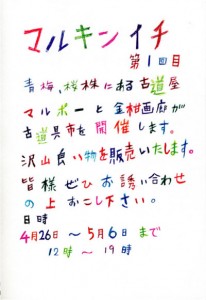 マルキンイチ
第1回目
青梅、桜株にある古道屋
マルポーと金柑画廊が
古道具市を開催します。
沢山良い物を販売いたします。
皆様ぜひお誘い合わせ
の上おこし下さい。
日時
4月26日 〜 5月6日 まで
12時 〜 19時